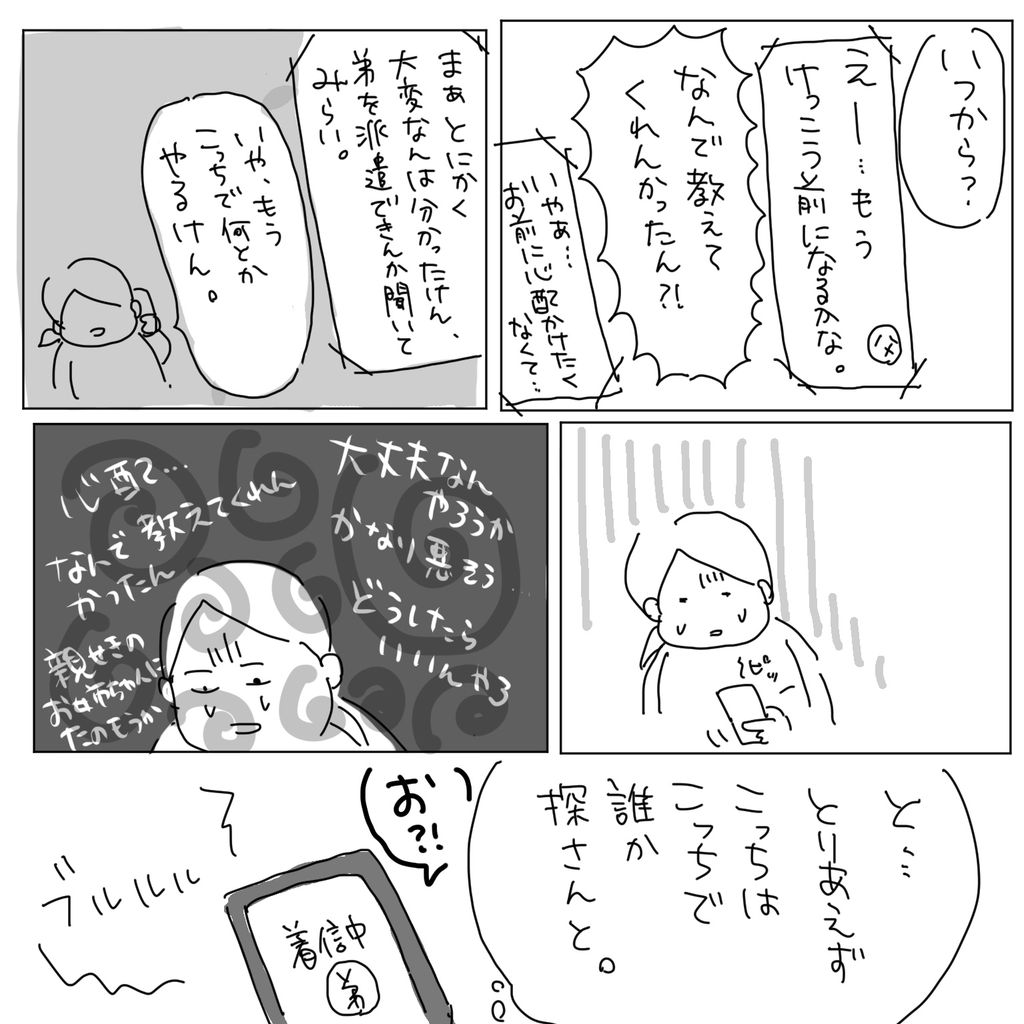 いつから?
えー…もう
けっこう前になるかな。
父
なんで教えて
くれんかったん?!
いやぁ…
お前に心配かけたく
なくて…
まぁとにかく
大変なんは分かったけん、
弟を派遣できんか聞いて
みらい。
いや、もう
こっちで何とか
やるけん。
ピッ
大丈夫なん
やろうか
かなり悪そう
どうしたら
いいんやろ
心配て…
なんで教えてくれん
かったん
親せきの
お姉ちゃんに
たのもうか
と…
とりあえず
こっちは
こっちで
誰か
探さんと。
お?!
ブルルルル
着信中
弟